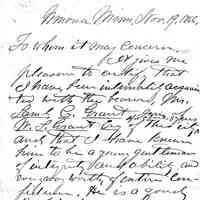 Winona, Minn., Nov. 19, 1866,
To whom it may concern
It gives me
pleasure to certify that
I have been intimately acquain
ted with the bearer, Mr.
Saml. C. Grant
W. S. Grant Co. of this city
and that I have known
him to be a young gentleman
of integrity and ability and
worthy of entire con
He is a good